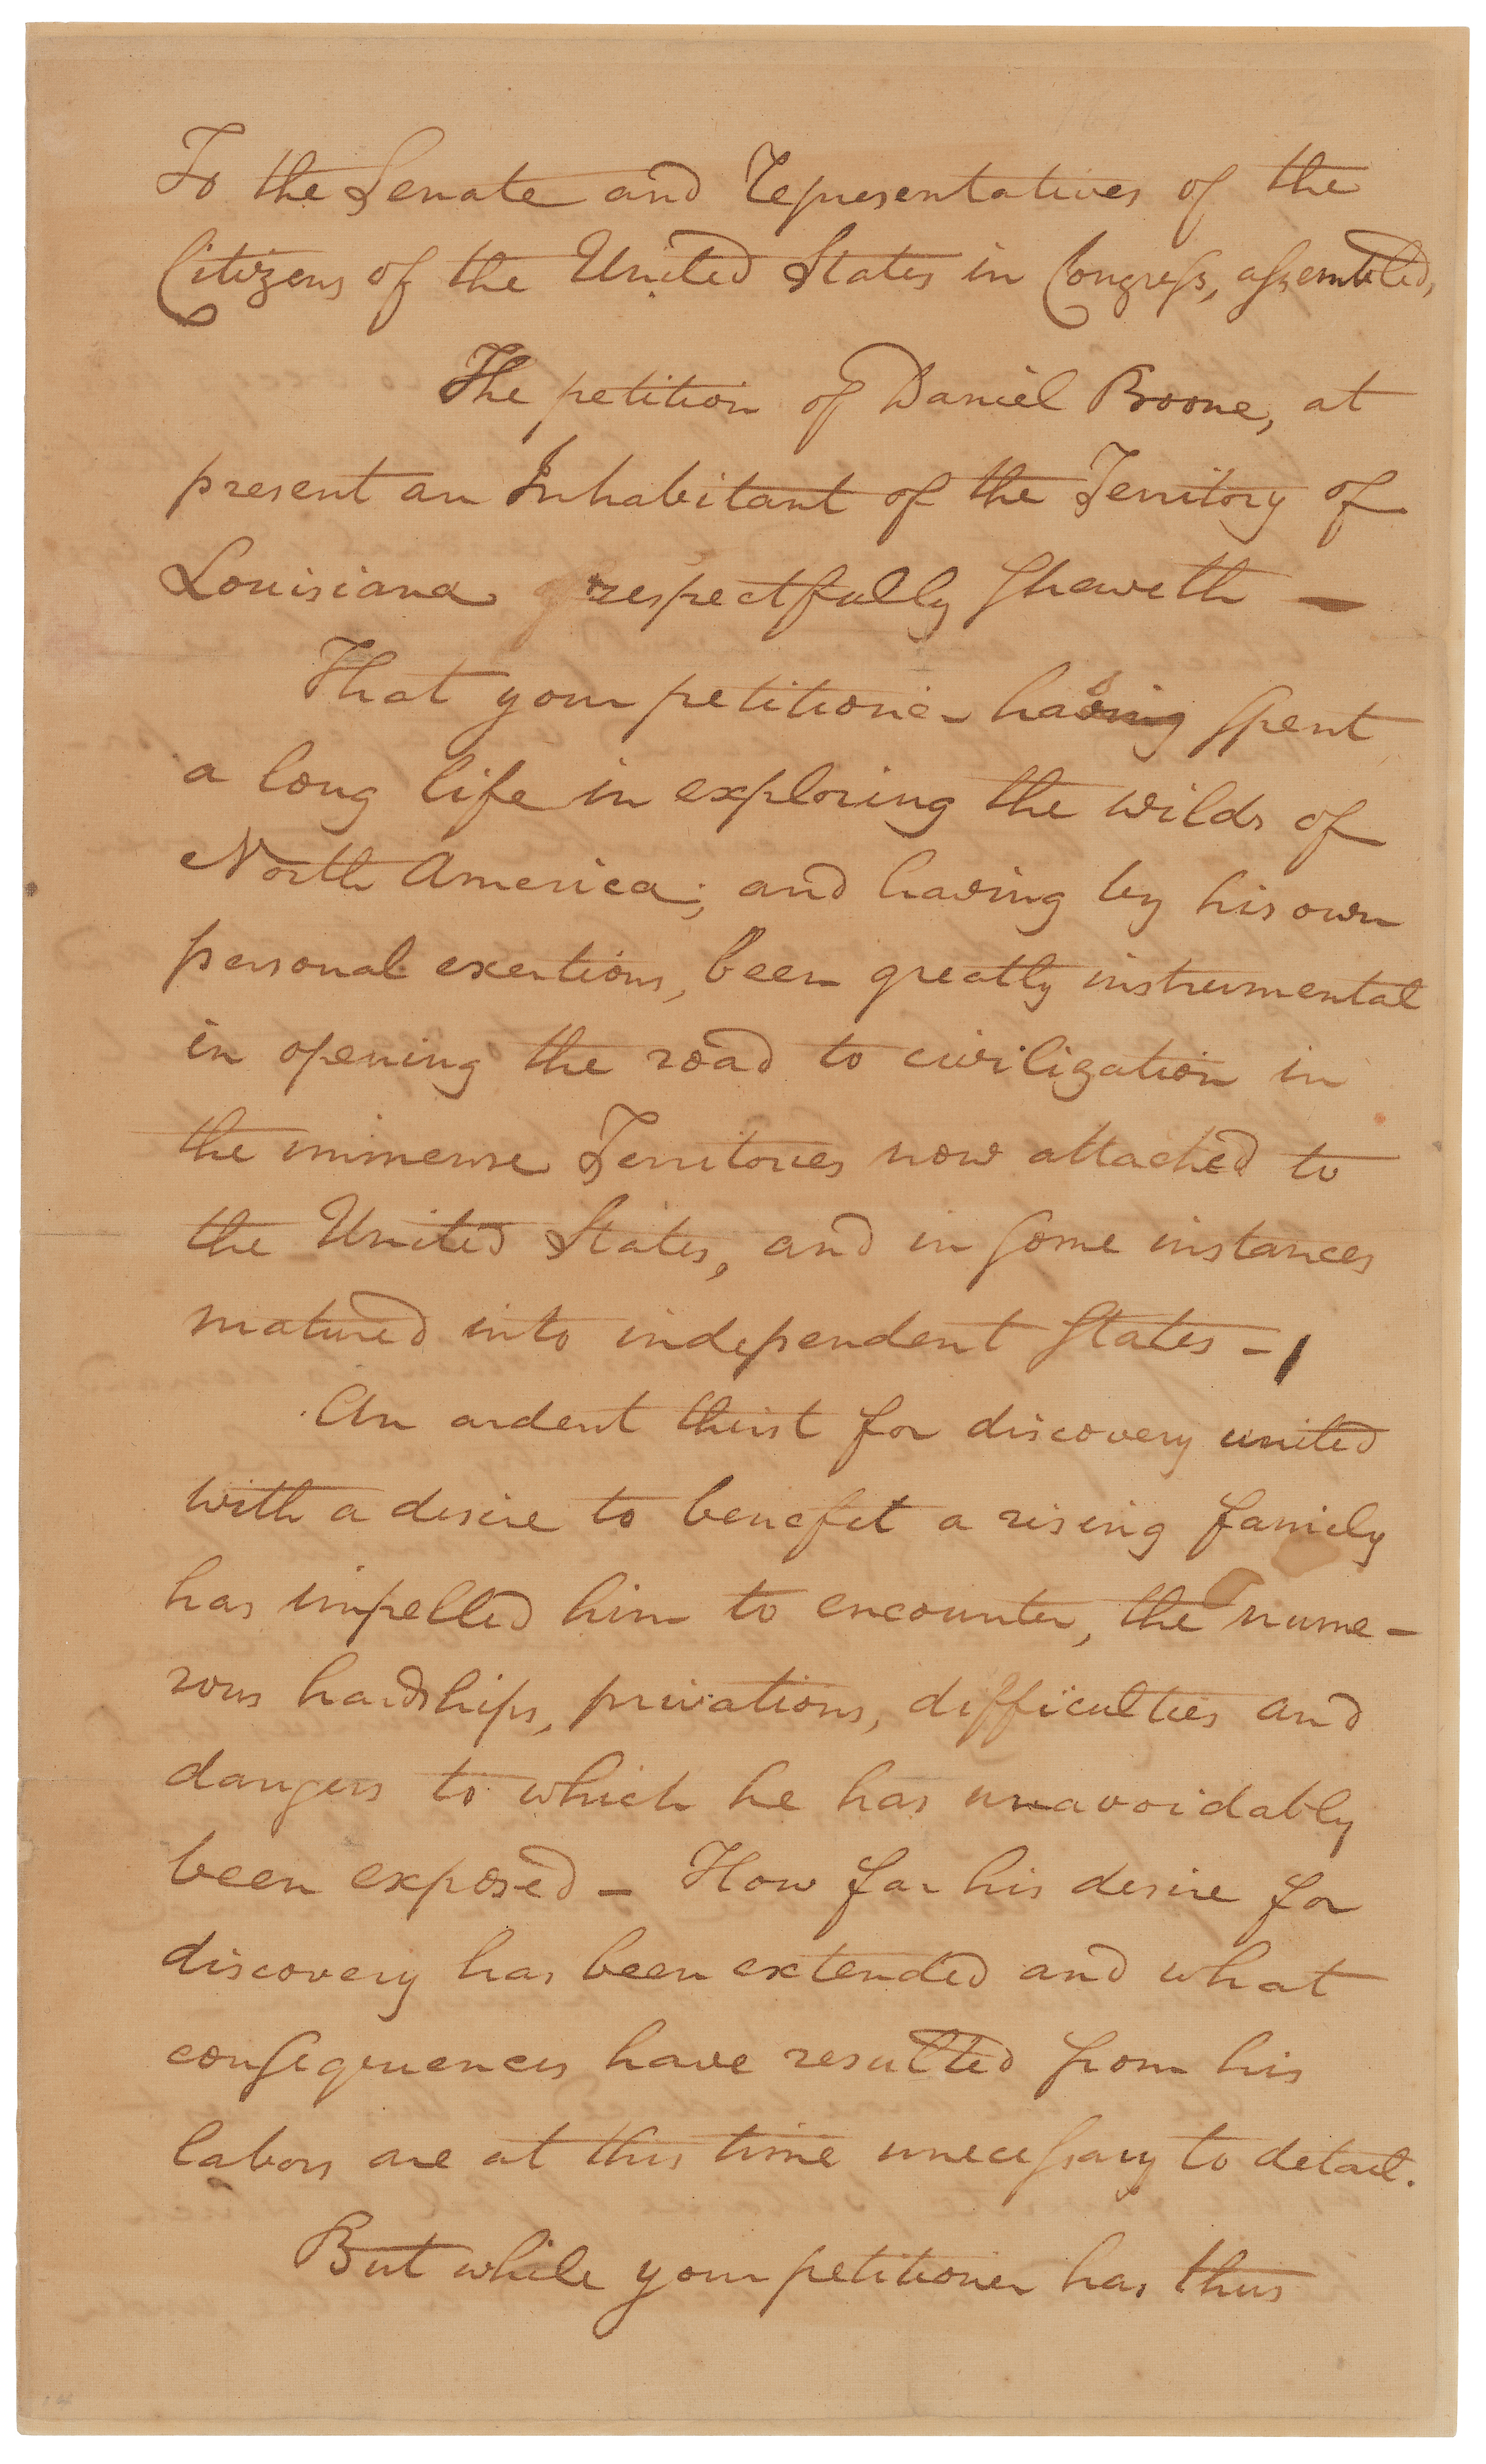 To the Senate and representatives of the
Citizens of the United States in Congress, assembled,
The petition of Daniel Boone, at
present an Inhabitant of the Territory of
Louisiana respectfully Sheweth —
That your petitioner having spent
a long life in exploring the wilds of
North America; and having by his own
personal exertions, been greatly instrumental
in opening the road to civilization in
the immense Territories now attached to
the United States, and in some instances
matured into independent States —
An ardent thirst for discovery united
with a desire to benefit a rising family
has impelled him to encounter, the nume-
rous hardships, privations, difficulties and
dangers to which he has unavoidably
been exposed — How far his desire for
discovery has been extended and what
consequences have resulted from his
labors are at this time unecessary to detail.
But while your petitioner has thus